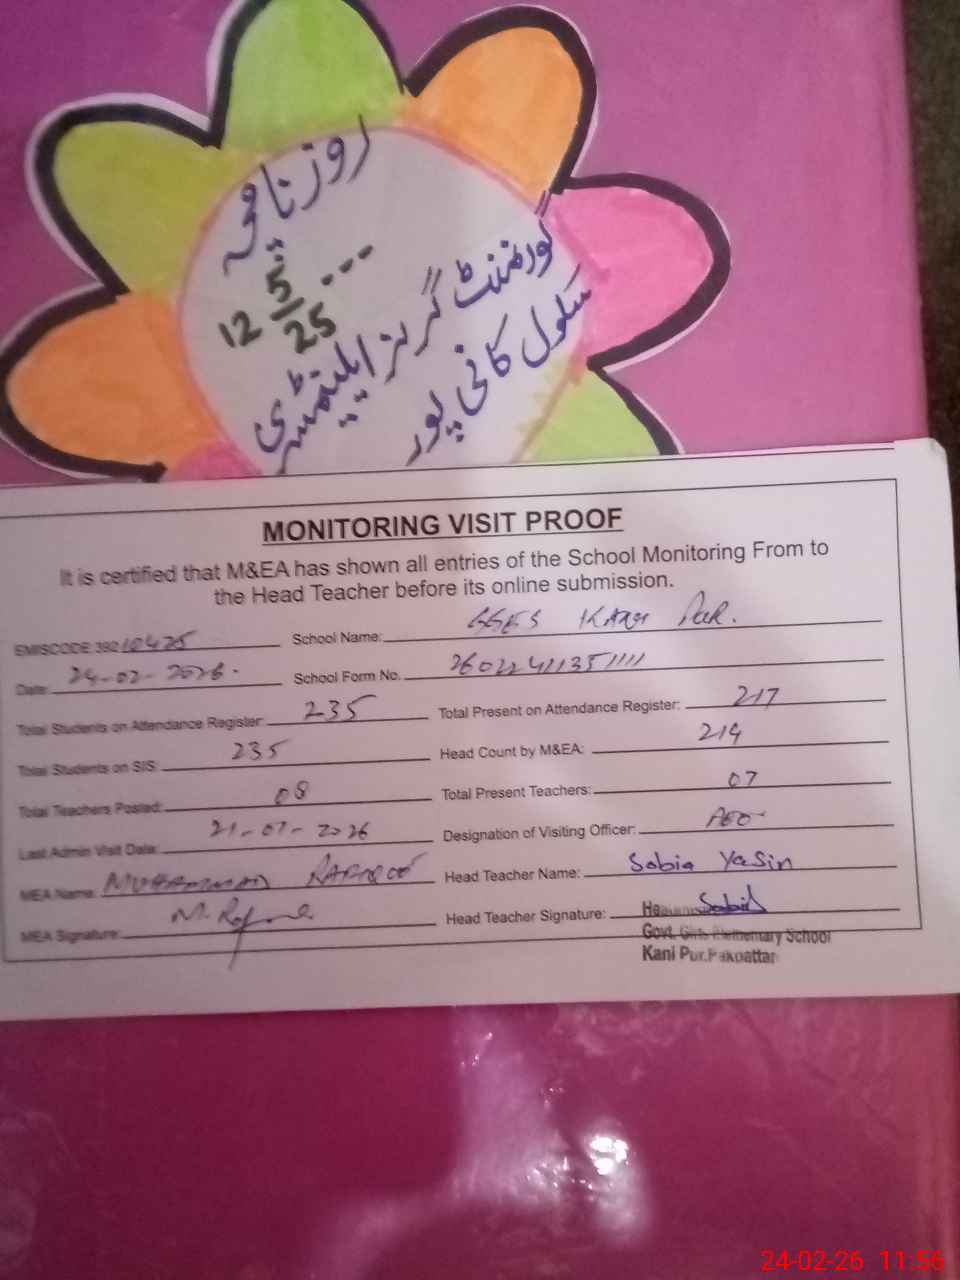 روزنامچہ
12 5/25 ---
گورنمنٹ گرلز ایلیمنٹری
سکول کانی پور
MONITORING VISIT PROOF
It is certified that M&EA has shown all entries of the School Monitoring From to
the Head Teacher before its online submission.
EMISCODE 392 10425 School Name: GGES KANI PUR.
Date: 24-02-2026. School Form No. 26022411351111
Total Students on Attendance Register: 235 Total Present on Attendance Register: 217
Total Students on SIS: 235 Head Count by M&EA: 214
Total Teachers Posted: 08 Total Present Teachers: 07
Last Admin Visit Date: 21-07-2026 Designation of Visiting Officer: AEO-
MEA Name: MUHAMMAD Head Teacher Name: Sobia Yasin
MEA Signature: Head Teacher Signature:
Govt. Girls Elementary School
Kani Pur.Pakpattan
24-02-26 11:56